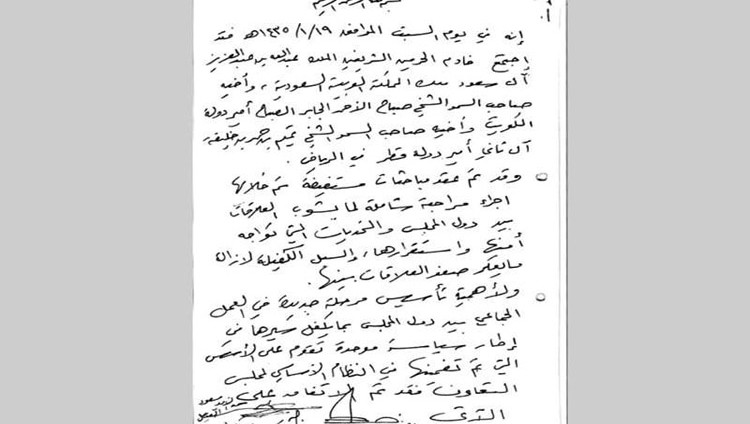 إنه في يوم السبت الموافق ١٤٣٥/١/١٩هـ فقد
إجتمع خادم الحرمين الشريفين الملك عبدالله بن عبدالعزيز
آل سعود ملك المملكة العربية السعودية، وأخيه
صاحب السمو الشيخ صباح الأحمد الجابر الصباح أمير دولة
الكويت وأخيه صاحب السمو الشيخ تميم بن حمد بن خليفه
آل ثاني أمير دولة قطر في الرياض.
وقد تم عقد مباحثات مستفيضة تم خلالها
اجراء مراجعة شاملة لما يشوب العلاقات
بين دول المجلس والتحديات التي تواجه
أمنها واستقرارها، والسبل الكفيلة لازالة
مايعكر صفو العلاقات بينها.
ولأهمية تأسيس مرحلة جديدة في العمل
الجماعي بين دول المجلس بما يكفل سيرها في
إطار سياسة موحدة تقوم على الأسس
التي تم تضمينها في النظام الأساسي لمجلس
التعاون فقد تم الاتفاق على
الآتي